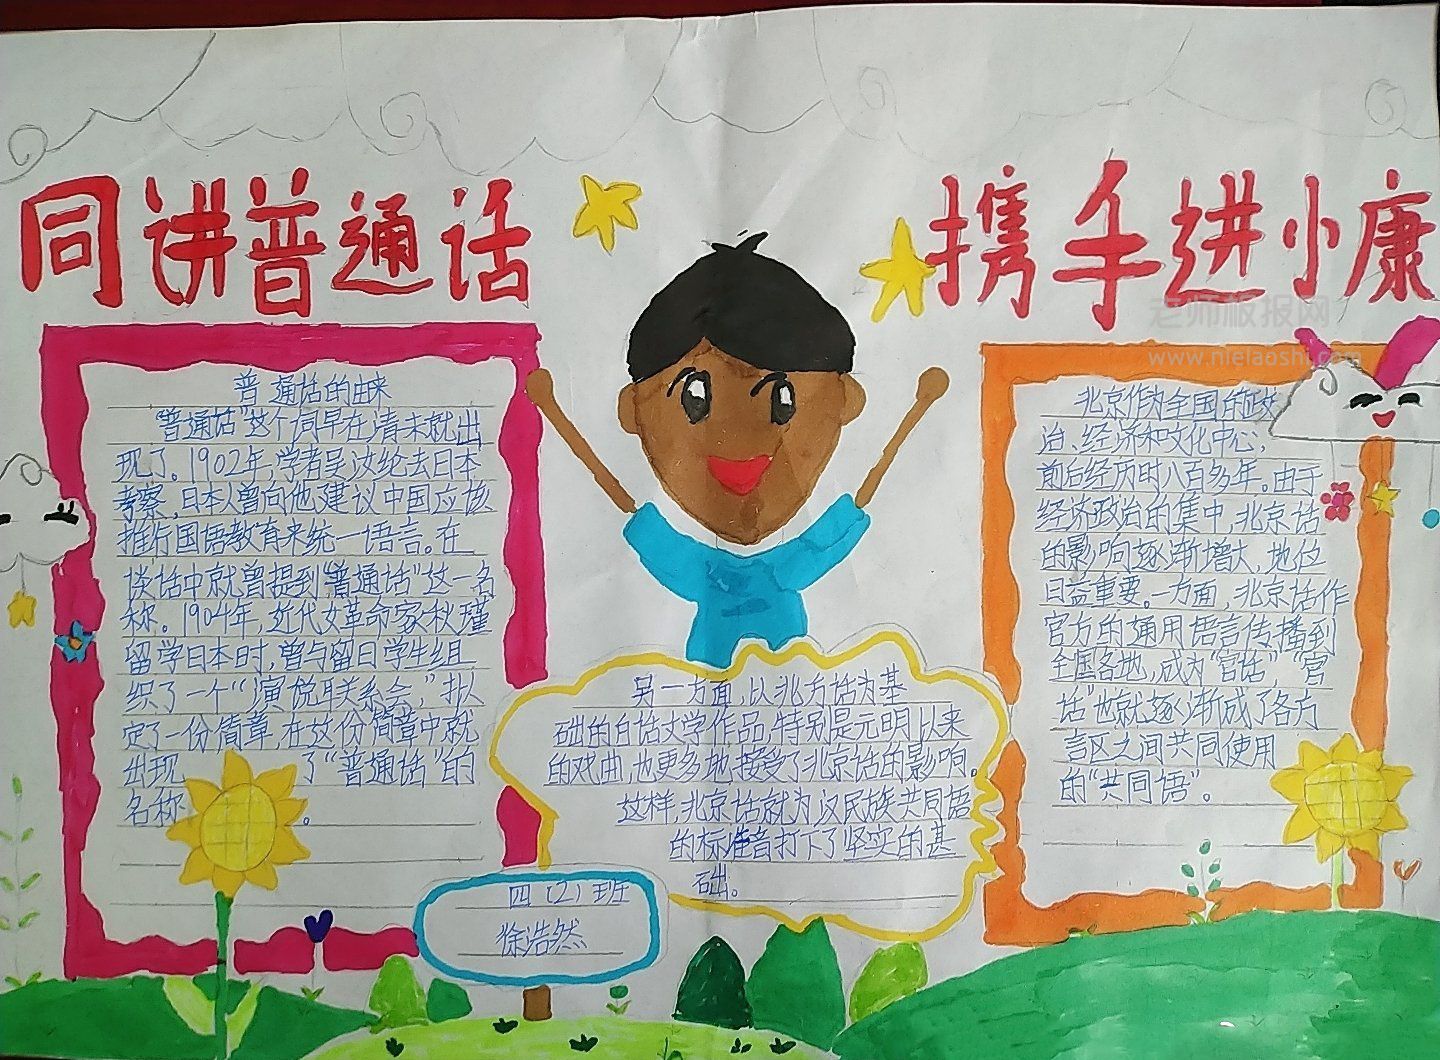 同讲普通话
携手进小康
老师板报网
www.nielaoshi.com
普通话的由来
“普通话”这个词早在清末就出
现了。1902年,学者吴汝纶去日本
考察,日本人曾向他建议中国应该
推行国语教育来统一语言。在
谈话中就曾提到“普通话”这一名
称。1904年,近代女革命家秋瑾
留学日本时,曾与留日学生组
织了一个“演说联系会,”拟
定了一份简章,在这份简章中就
出现了“普通话”的
名称。
另一方面,以北方话为基
础的白话文学作品,特别是元明以来
的戏曲,也更多地接受了北京话的影响。
这样,北京话就为汉民族共同语
的标准音打下了坚实的基
础。
四(2)班
徐浩然
北京作为全国的政
治、经济和文化中心,
前后经历时八百多年。由于
经济政治的集中,北京话
的影响逐渐增大,地位
日益重要。一方面,北京话作
官方的通用语言传播到
全国各地,成为“官话”,“官
话”也就逐渐成了各方
言区之间共同使用
的“共同语”。